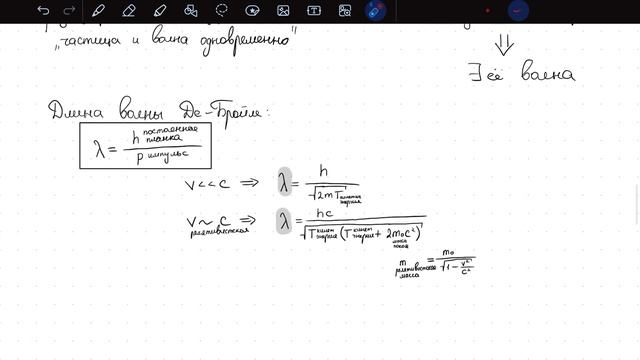 „частица и волна одновременно"
⇓
∃ её волна
Длина волны Де-Бройля:
λ = h постоянная планка / p импульс
v << c ⇒ λ = h / √2mT кинетич энергия
v ~ c ⇒ λ = hc / √T кинет энергия (T кинет энергия + 2m₀c²)
релятивистская
масса покоя
m релятивистская масса = m₀ / √1 − v²/c²